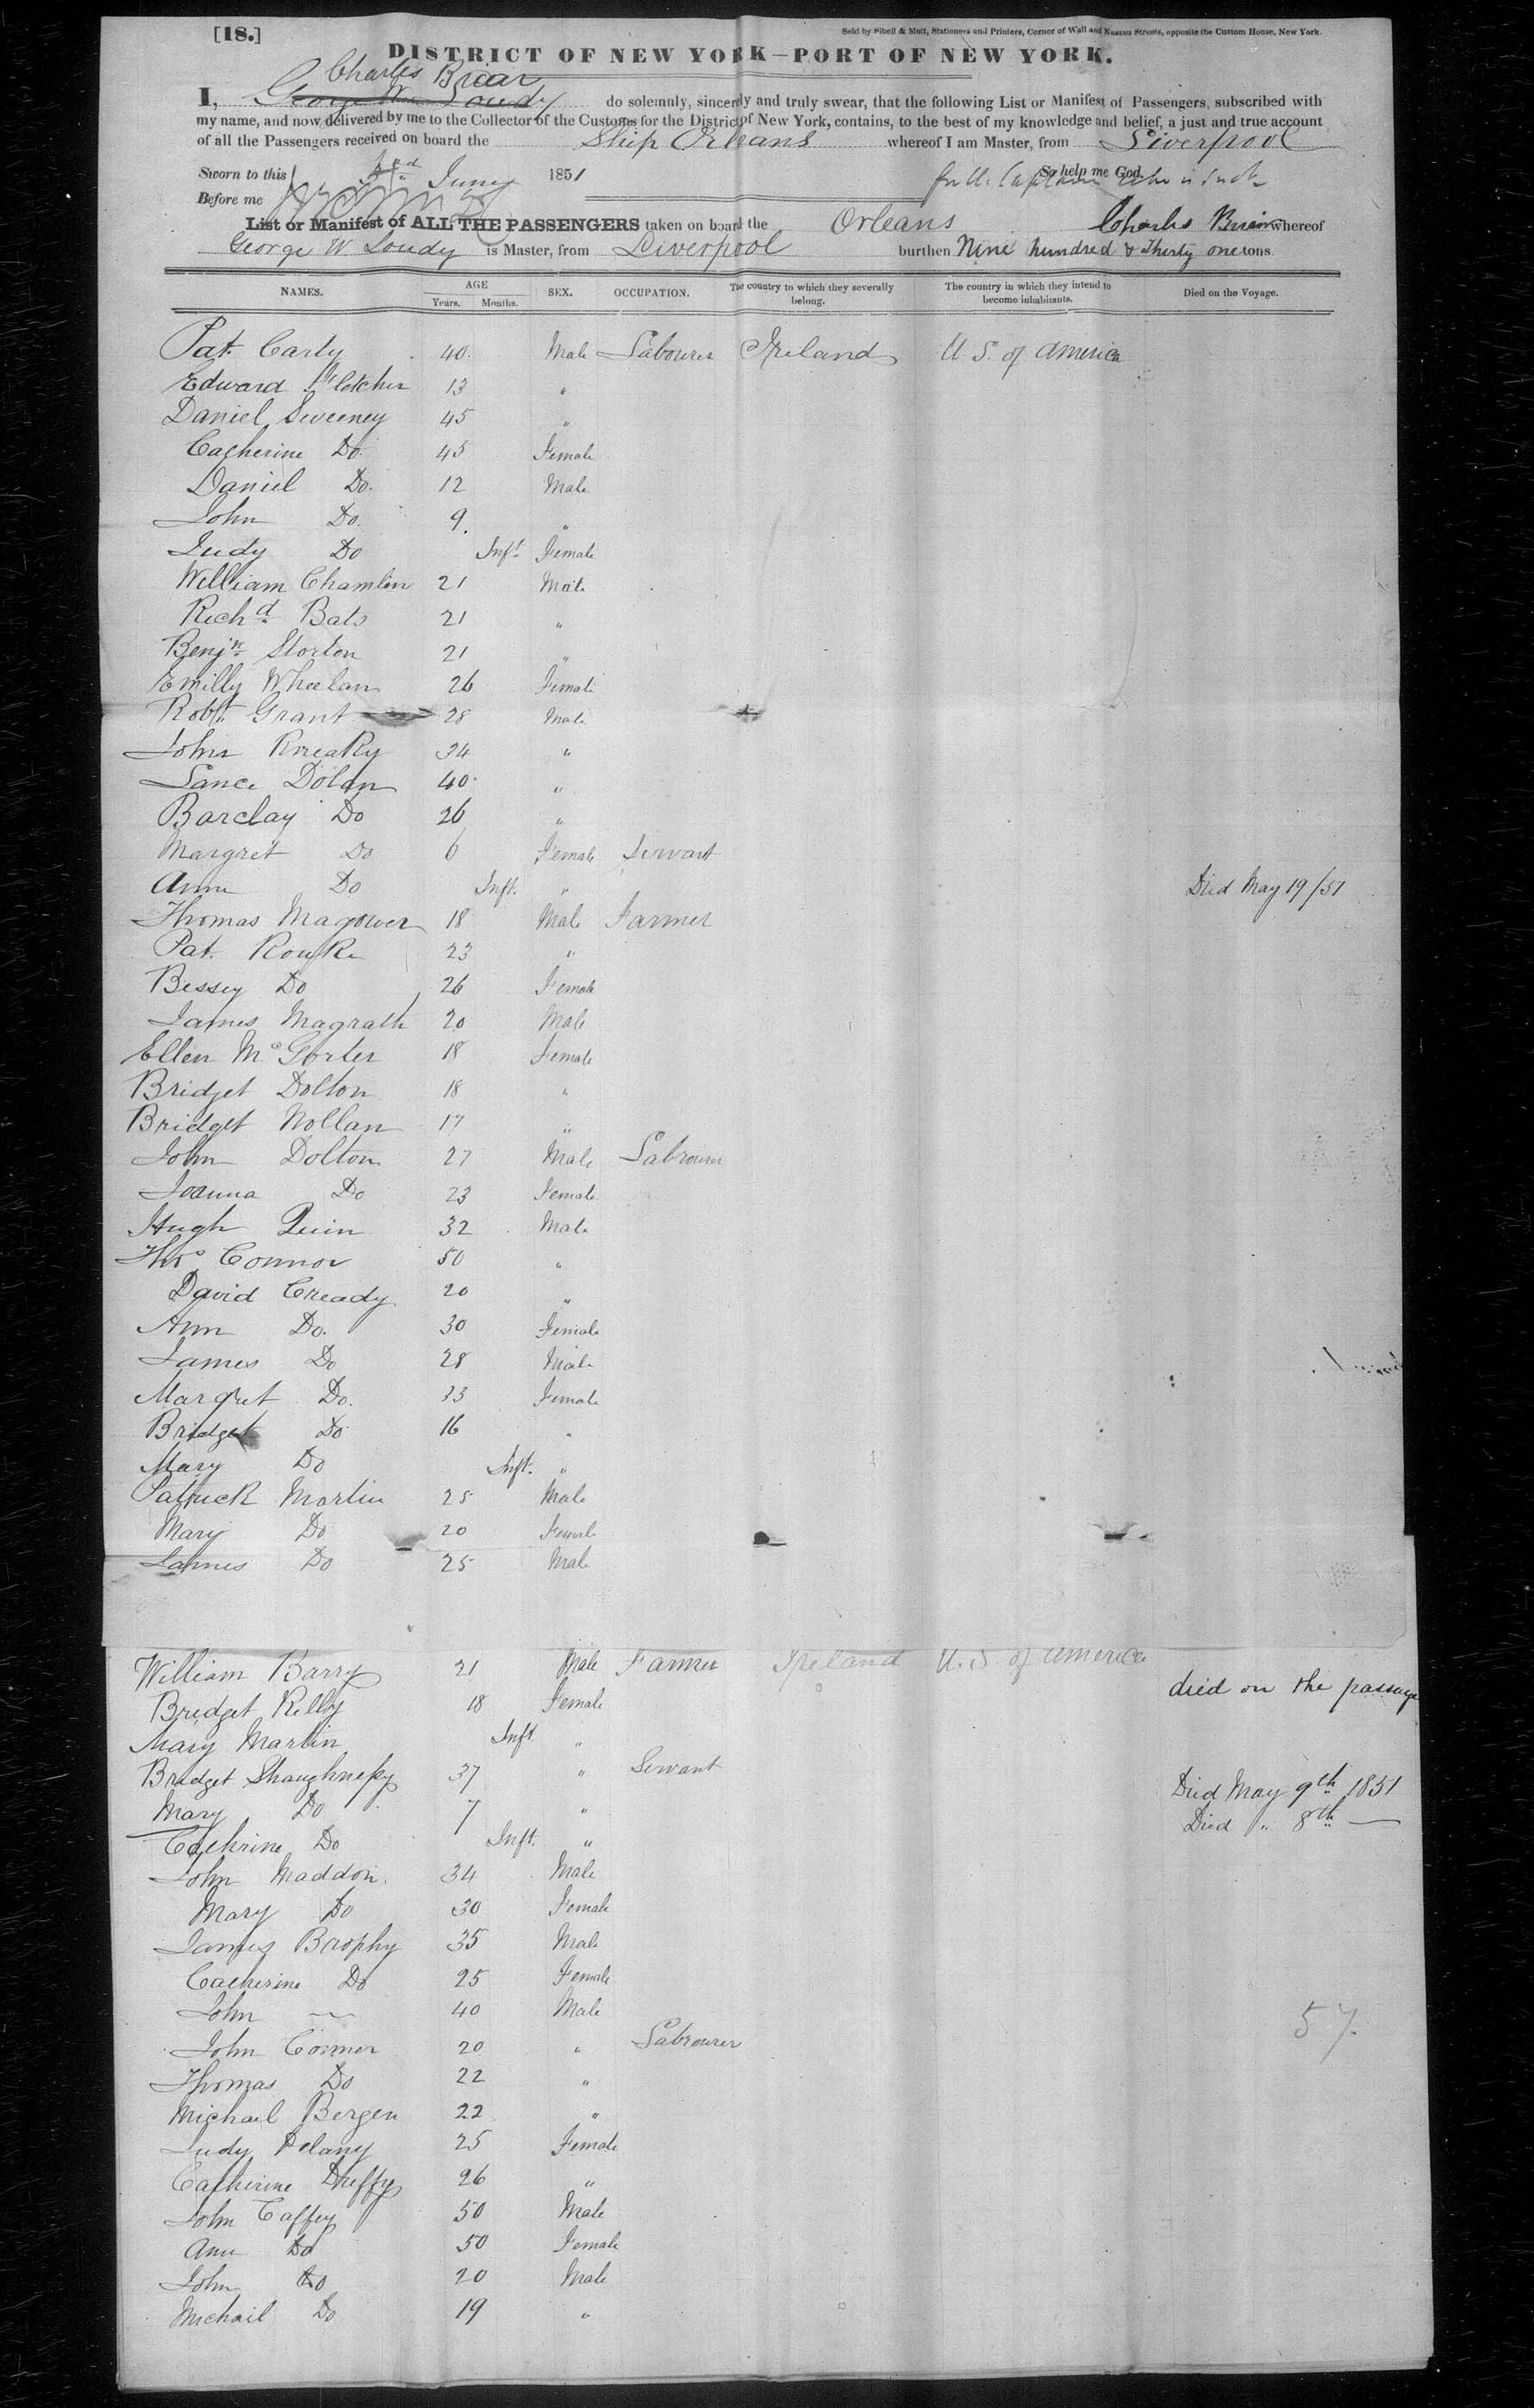 [18.]
Sold by Sibell & Mott, Stationers and Printers, Corner of Wall and Nassau Streets, opposite the Custom House, New York.
DISTRICT OF NEW YORK—PORT OF NEW YORK.
Charles Briar
I, George W. Soudy do solemnly, sincerely and truly swear, that the following List or Manifest of Passengers, subscribed with
my name, and now delivered by me to the Collector of the Customs for the District of New York, contains, to the best of my knowledge and belief, a just and true account
of all the Passengers received on board the Ship Orleans whereof I am Master, from Liverpool
Sworn to this 3rd June 1851 So help me God.
Before me
List or Manifest of ALL THE PASSENGERS taken on board the Orleans Charles Briar whereof
George W Soudy is Master, from Liverpool burthen Nine hundred & Thirty one tons.
NAMES. AGE Years. Months. SEX. OCCUPATION. The country to which they severally belong. The country in which they intend to become inhabitants. Died on the Voyage.
Pat. Carly 40 Male Labourer Ireland U.S. of America
Edward 13 "
Daniel Sweeney 45 "
Catherine Do 45 Female
Daniel Do. 12 Male
John Do. 9. "
Judy Do Inft. Female
William Chamlin 21 Male
Richd. Bats 21 "
Benjn. Storton 21 "
Emilly Wheelan 26 Female
Robt. Grant 28 Male
John Kneaky 34 "
Lance Dolan 40 "
Barclay Do 26 "
Margret Do 6 Female Servant
Ann Do Inft. " Died May 19/51
Thomas Magower 18 Male Farmer
Pat. Rourke 23 "
Bessey Do 26 Female
James Magrath 20 Male
Ellen McGorter 18 Female
Bridget Dolton 18 "
Bridget Nollan 17 "
John Dolton 27 Male Labourer
Joanna Do 23 Female
Hugh Quin 32 Male
Thos Connor 50 "
David Cready 20 "
Ann Do. 30 Female
James Do 28 Male
Margret Do. 33 Female
Bridget Do 16 "
Mary Do Inft. "
Patrick Martin 25 Male
Mary Do 20 Female
James Do 25 Male
William Barry 21 Male Farmer Ireland U.S. of America
Bridget Kelly 18 Female died on the passage
Mary Martin Inft. "
Bridget Shaughnessy 37 " Servant
Mary Do 7 " Died May 9th 1851
Catherine Do Inft. " Died " 8th —
John Maddon 34 Male
Mary Do 30 Female
James Brophy 35 Male
Catherine Do 25 Female
John — 40 Male
57.
John Conner 20 " Labourer
Thomas Do 22 "
Michael Bergen 22 "
Judy Delany 25 Female
Catherine Duffy 26 "
John Caffey 50 Male
Ann Do 50 Female
John Do 20 Male
Michail Do 19 "